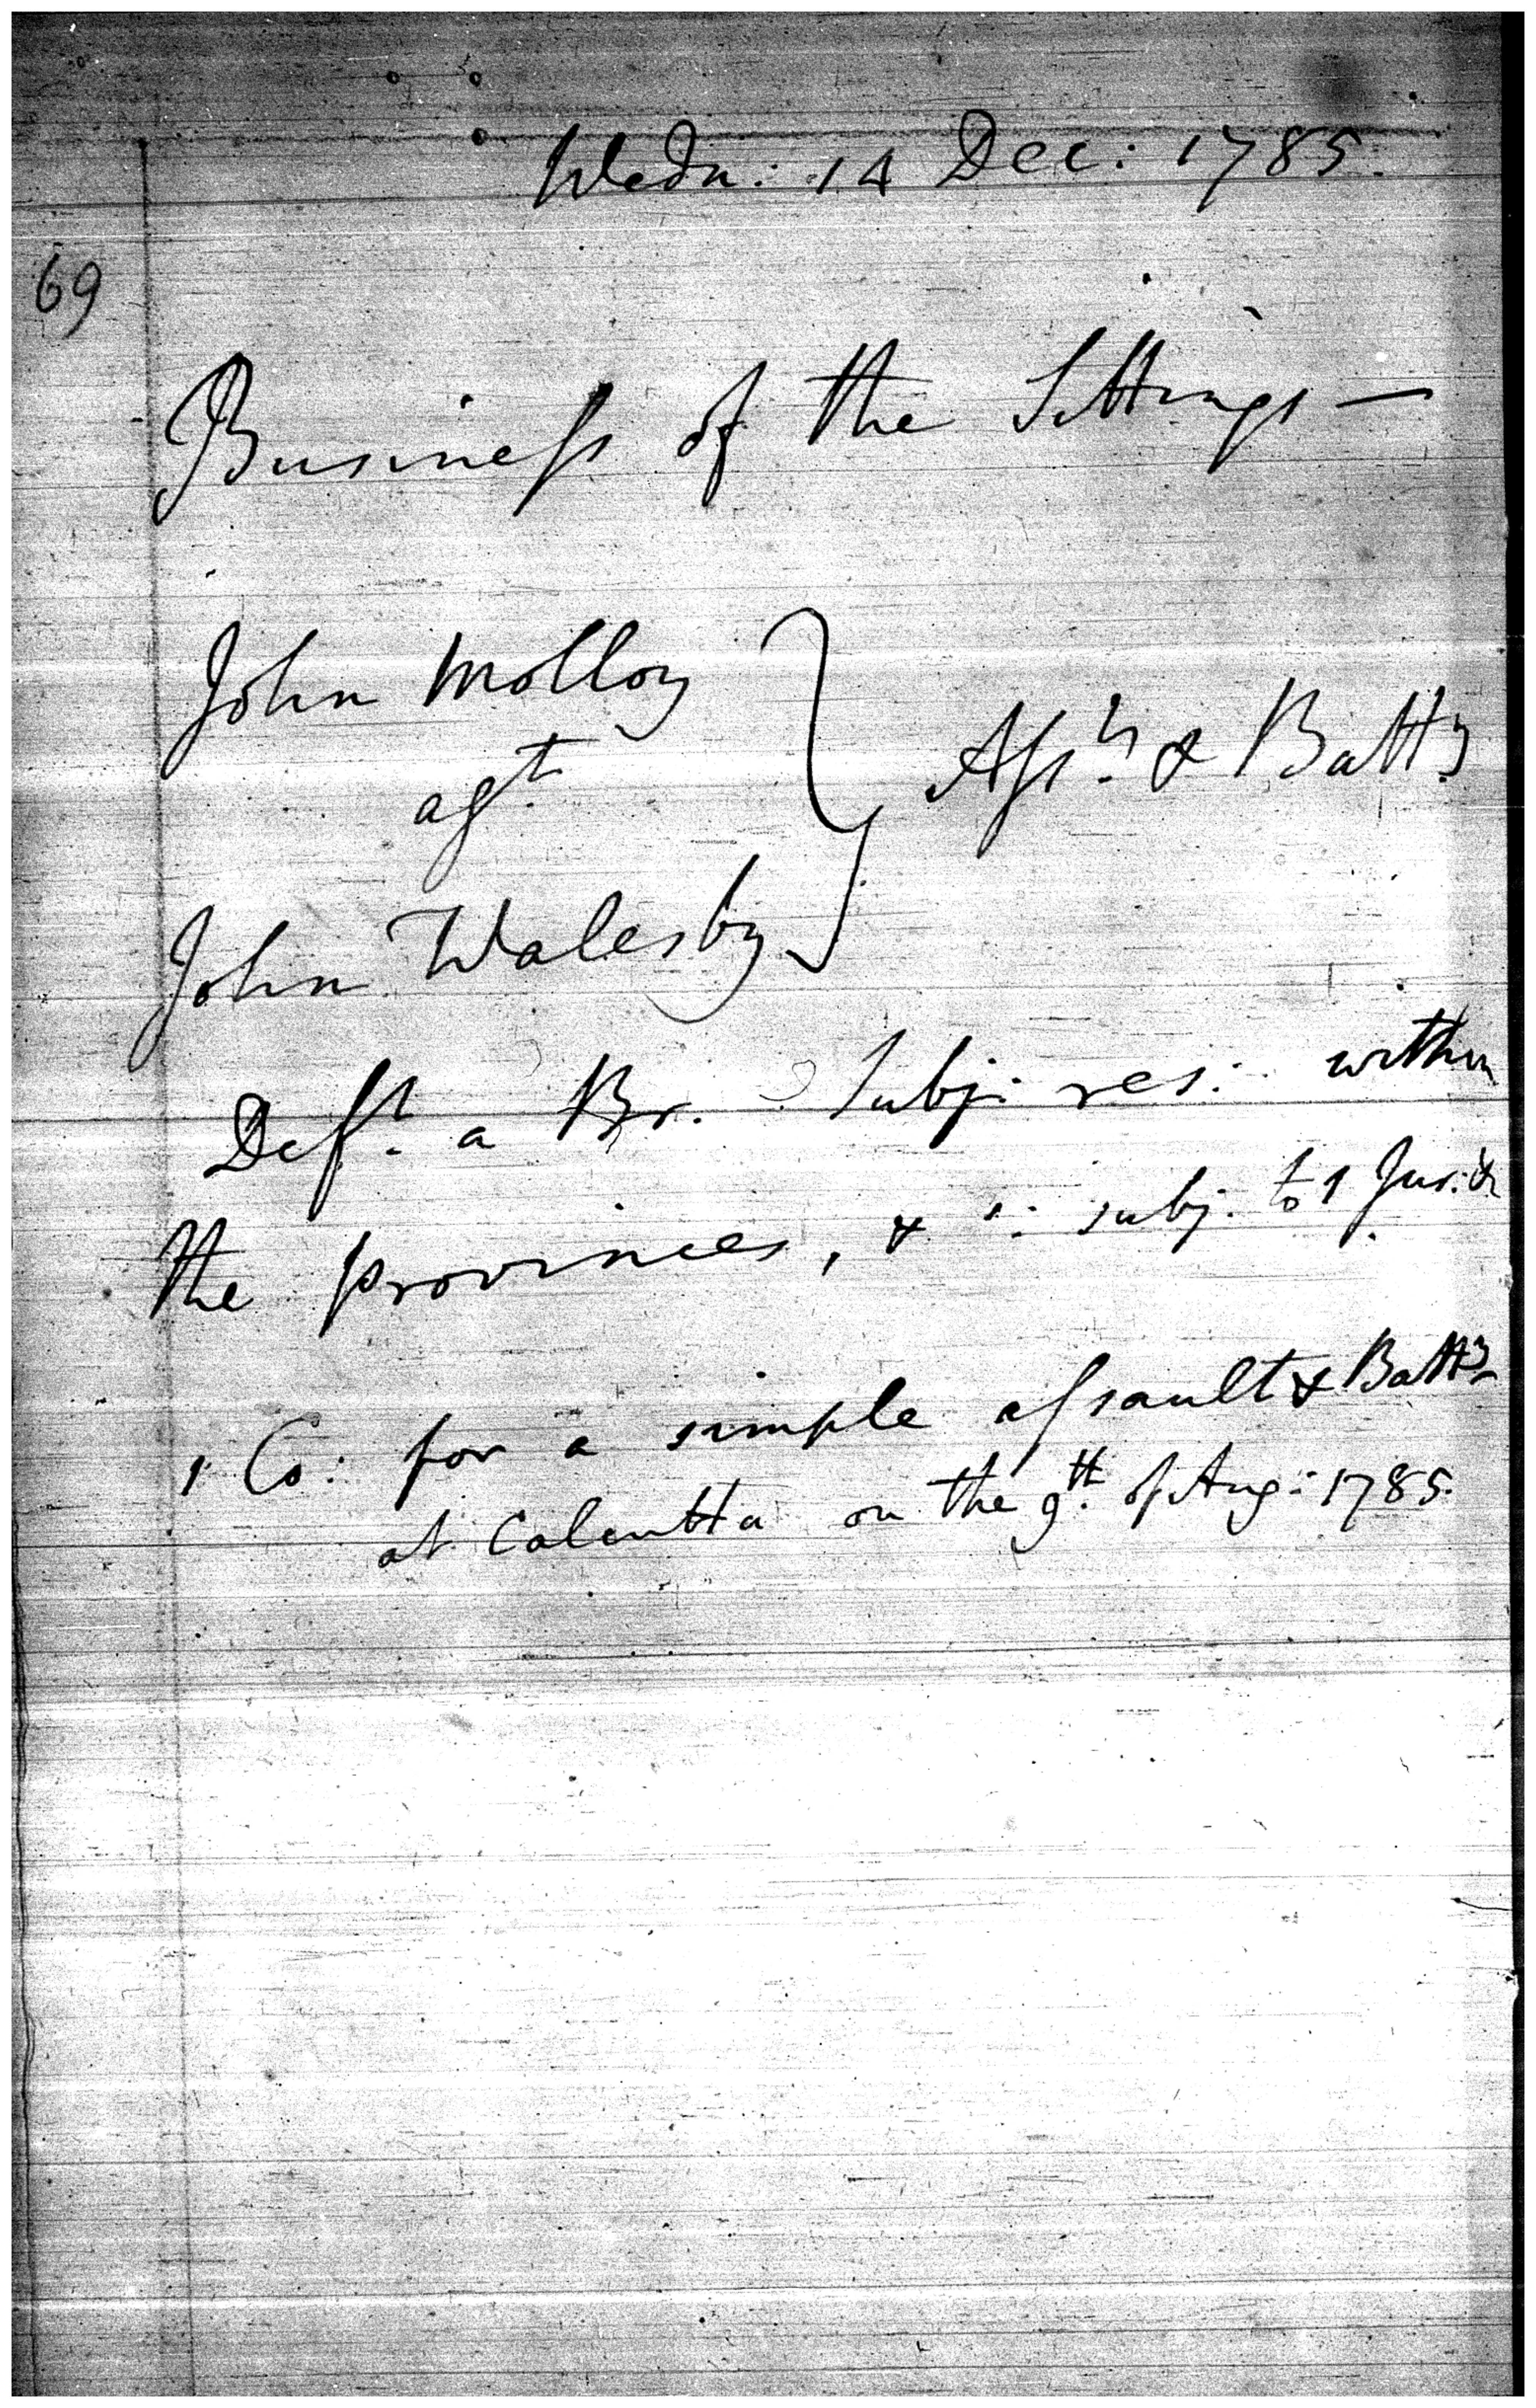 Wedn: 14 Dec: 1785.
69
Business of the Sittings —
John Molloy
agt
Asst. & Batty
John Walesby
Deft. a Br. Subj. res: within
the provinces, & s: subj. to 1 Jur:
1 Co: for a simple assault & Batty
at Calcutta on the 9th. of Aug: 1785.